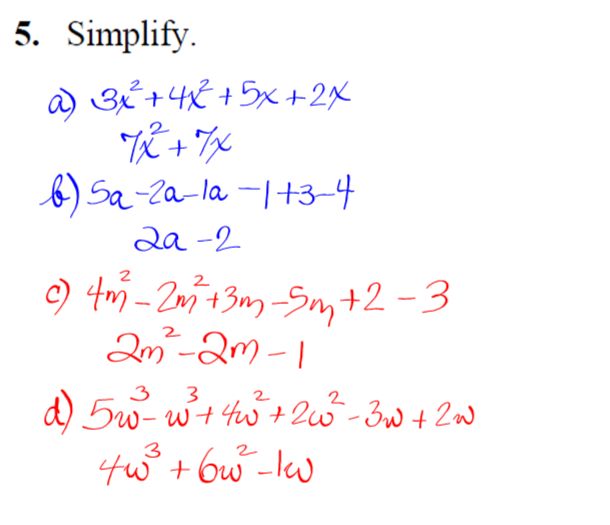 5. Simplify.
a) 3x² + 4x² + 5x + 2x
7x² + 7x
b) 5a - 2a - 1a - 1 + 3 - 4
2a - 2
c) 4m² - 2m² + 3m - 5m + 2 - 3
2m² - 2m - 1
d) 5w³ - w³ + 4w² + 2w² - 3w + 2w
4w³ + 6w² - 1w